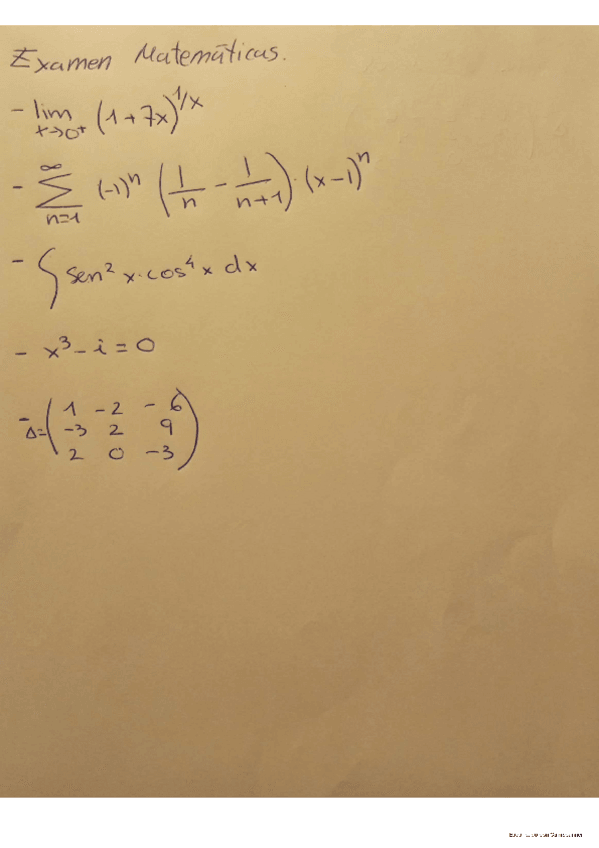 Examen Matemáticas.
- lim x→0⁺ (1+7x)^1/x
- ∑ n=1 ∞ (-1)ⁿ (1/n - 1/(n+1))·(x-1)ⁿ
- ∫ sen² x·cos⁴ x dx
- x³ - i = 0
- Δ= (1 -2 -6
-3 2 9
2 0 -3)